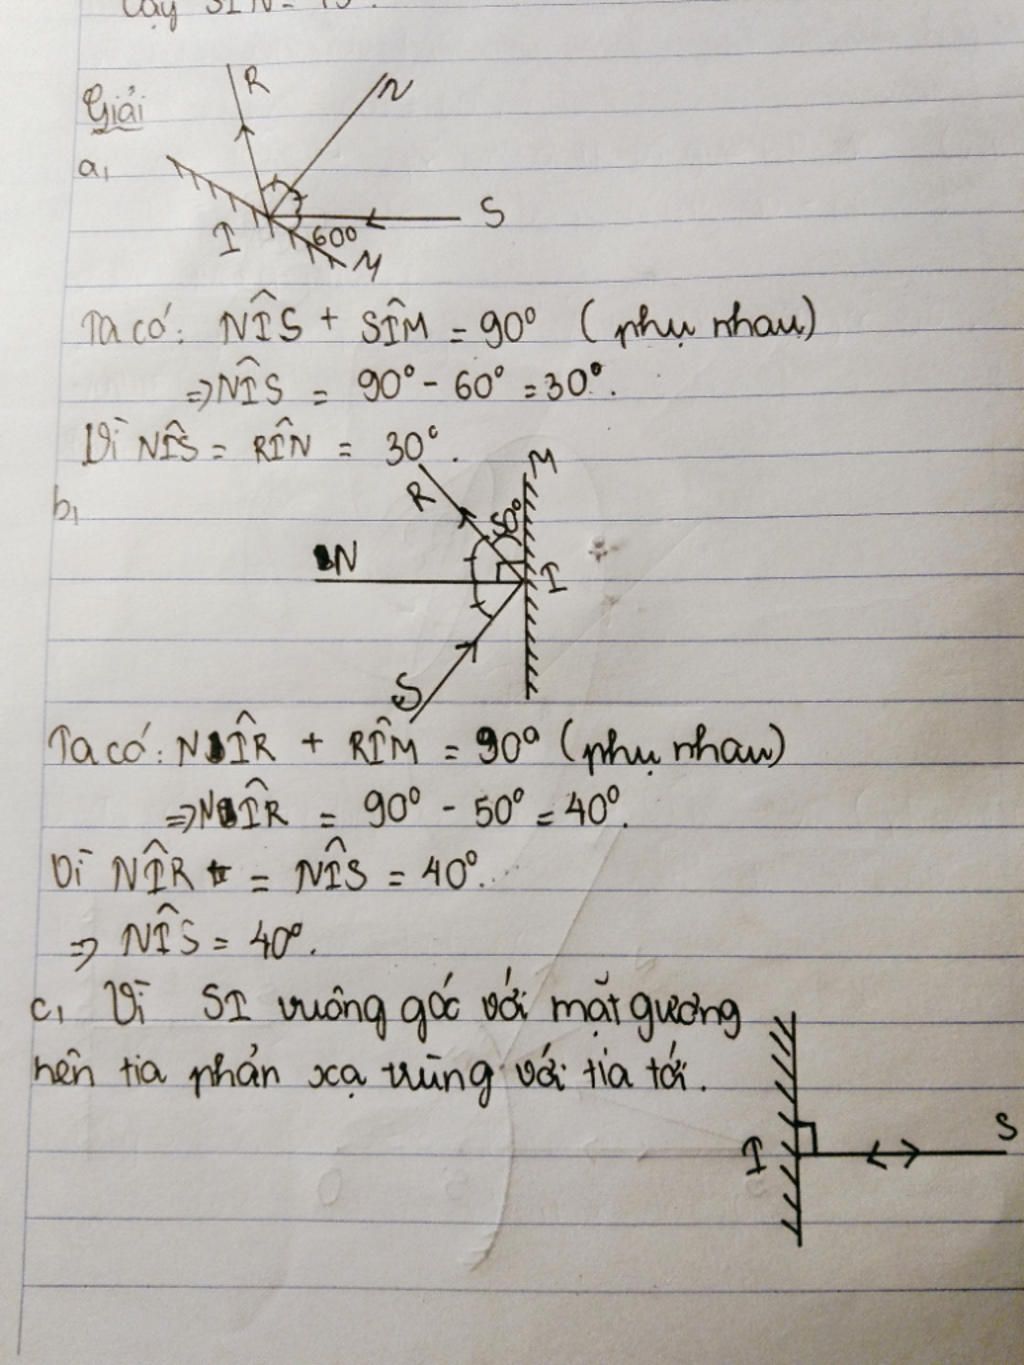 Giải
a,
R
N
S
I
60°
M
Ta có: NÎS + SÎM = 90° (phụ nhau)
=> NÎS = 90° - 60° = 30°.
Vì NÎS = RÎN = 30°.
b,
M
R
50°
N
I
S
Ta có: NÎR + RÎM = 90° (phụ nhau)
=> NÎR = 90° - 50° = 40°.
Vì NÎR = NÎS = 40°.
=> NÎS = 40°.
c, Vì SI vuông góc với mặt gương
nên tia phản xạ trùng với tia tới.
S
I